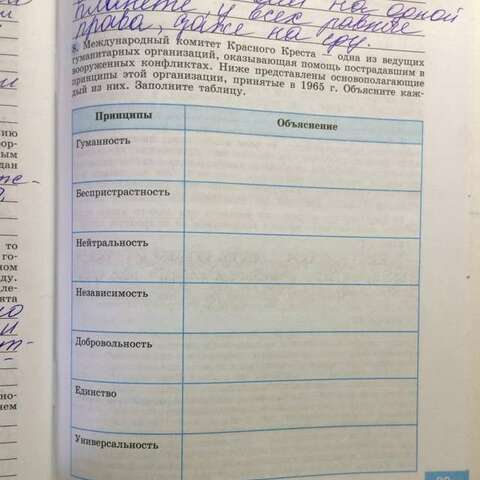 планете у всех равные
права, даже на еду.
8. Международный комитет Красного Креста — одна из ведущих
гуманитарных организаций, оказывающая помощь пострадавшим в
вооруженных конфликтах. Ниже представлены основополагающие
принципы этой организации, принятые в 1965 г. Объясните каж-
дый из них. Заполните таблицу.
Принципы Объяснение
Гуманность
Беспристрастность
Нейтральность
Независимость
Добровольность
Единство
Универсальность